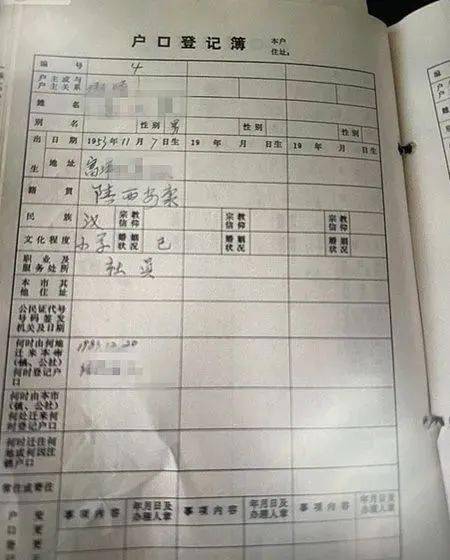 户口登记簿 本户住址:
编号 4
户主或与户主关系
姓名
别名 性别 男 性别 性别
出生 日期 1953年11月7日生 19 年 月 日生 19 年 月 日生
地址
籍贯 陕西
民族 汉 宗教信仰 宗教信仰 宗教信仰
文化程度 小学 婚姻状况 已 婚姻状况 婚姻状况
职业及服务处所 社员
本市其他住址
公民证代号号码签发机关及日期
何时由何地迁来本市(镇、公社) 1983.12.20
何时登记户口
何时由本市(镇、公社)何处迁来何时登记户口
何时迁往何地或何因注销户口
常住或寄注
户口登记 变更 事项内容 年月日及办理人章 事项内容 年月日及办理人章 事项内容 年月日及办理人